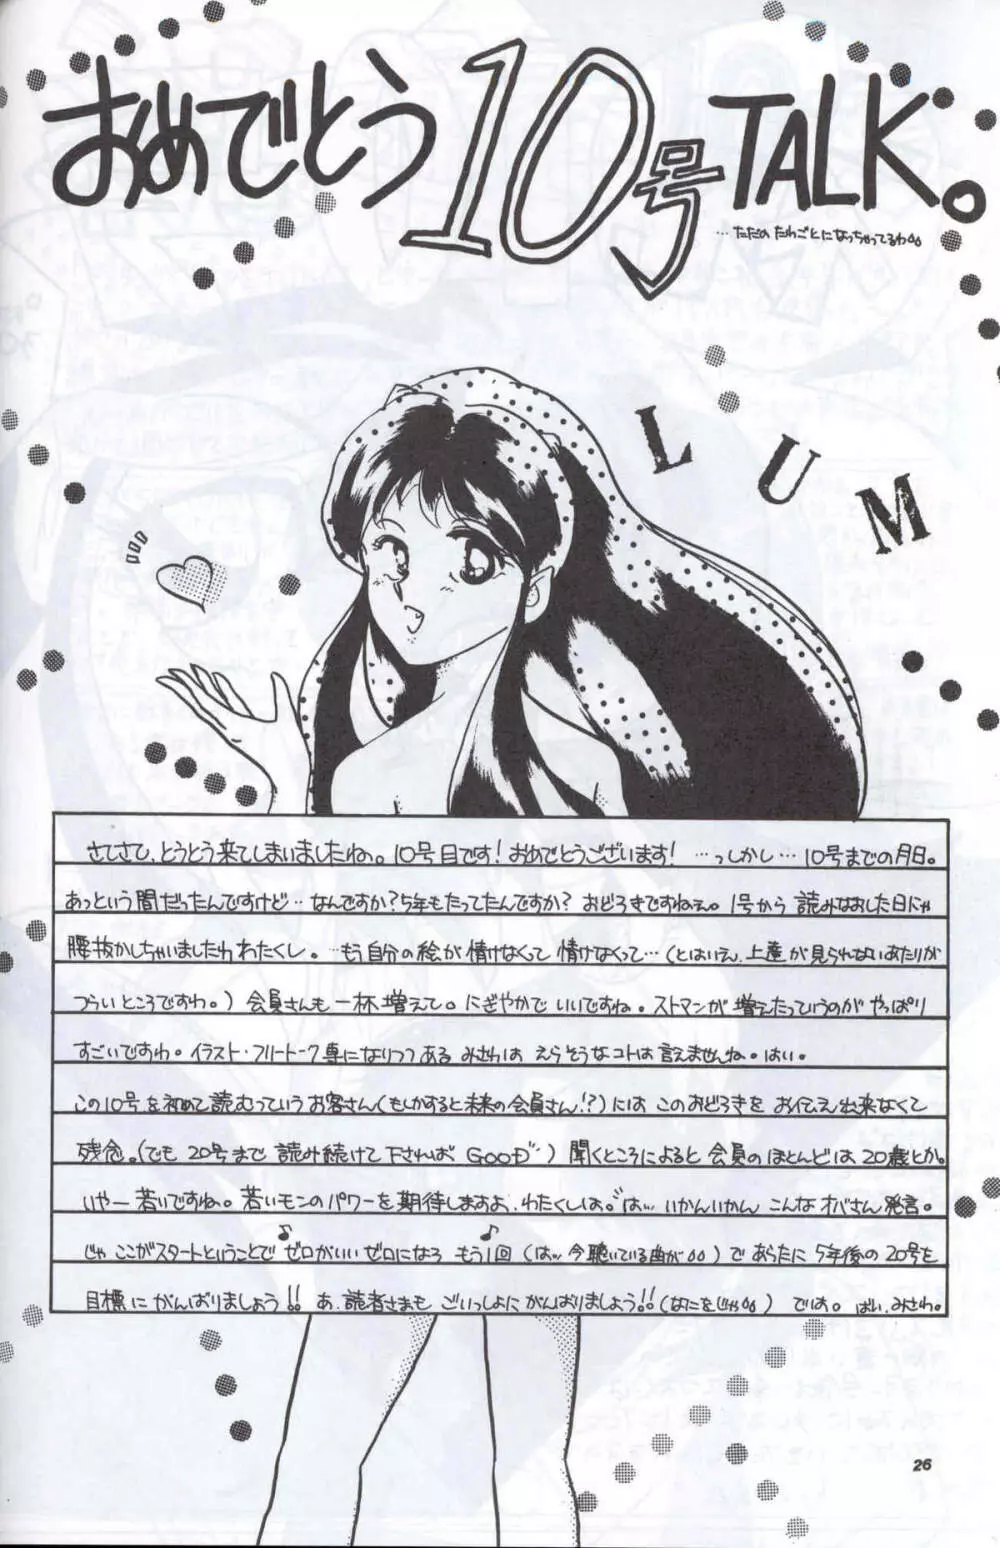 おめでとう10号TALK。
…ただの たわごとになっちゃってるわ
LUM
さてさて、とうとう来てしまいましたね。10号目です!おめでとうございます! …っしかし…10号までの月日。
あっという間だったんですけど…なんですか?5年もたってたんですか? おどろきですねぇ。1号から 読みなおした日にゃ
腰抜かしちゃいましたわ わたくし。…もう自分の絵が 情けなくて 情けなくって…(とはいえ、上達が見られないあたりが
つらいところですわ。) 会員さんも 一杯 増えて。にぎやかで いいですね。ストマンが 増えたっていうのが やっぱり
すごいですわ。イラスト・フリートーク専になりつつ ある みさわは えらそうなコトは 言えませんね。はい。
この10号を初めて読むっていう お客さん(もしかすると未来の会員さん!?)には このおどろきを お伝え出来なくて
残念。(でも 20号まで 読み続けて 下されば GOOD) 聞くところによると 会員の ほとんどは 20歳とか。
いやー 若いですね。若いモンのパワーを 期待しますよ、わたくしは。は… いかんいかん こんな オバさん発言。
じゃ ここがスタートということで ♪ゼロがいい ゼロになろ もう1回♪ (は… 今 聴いている曲が) で あらたに 5年後の 20号を
目標に がんばりましょう!! あ、読者さまも ごいっしょに がんばりましょう!! (なにをじゃ) では。 ぱい、みさわ。
26